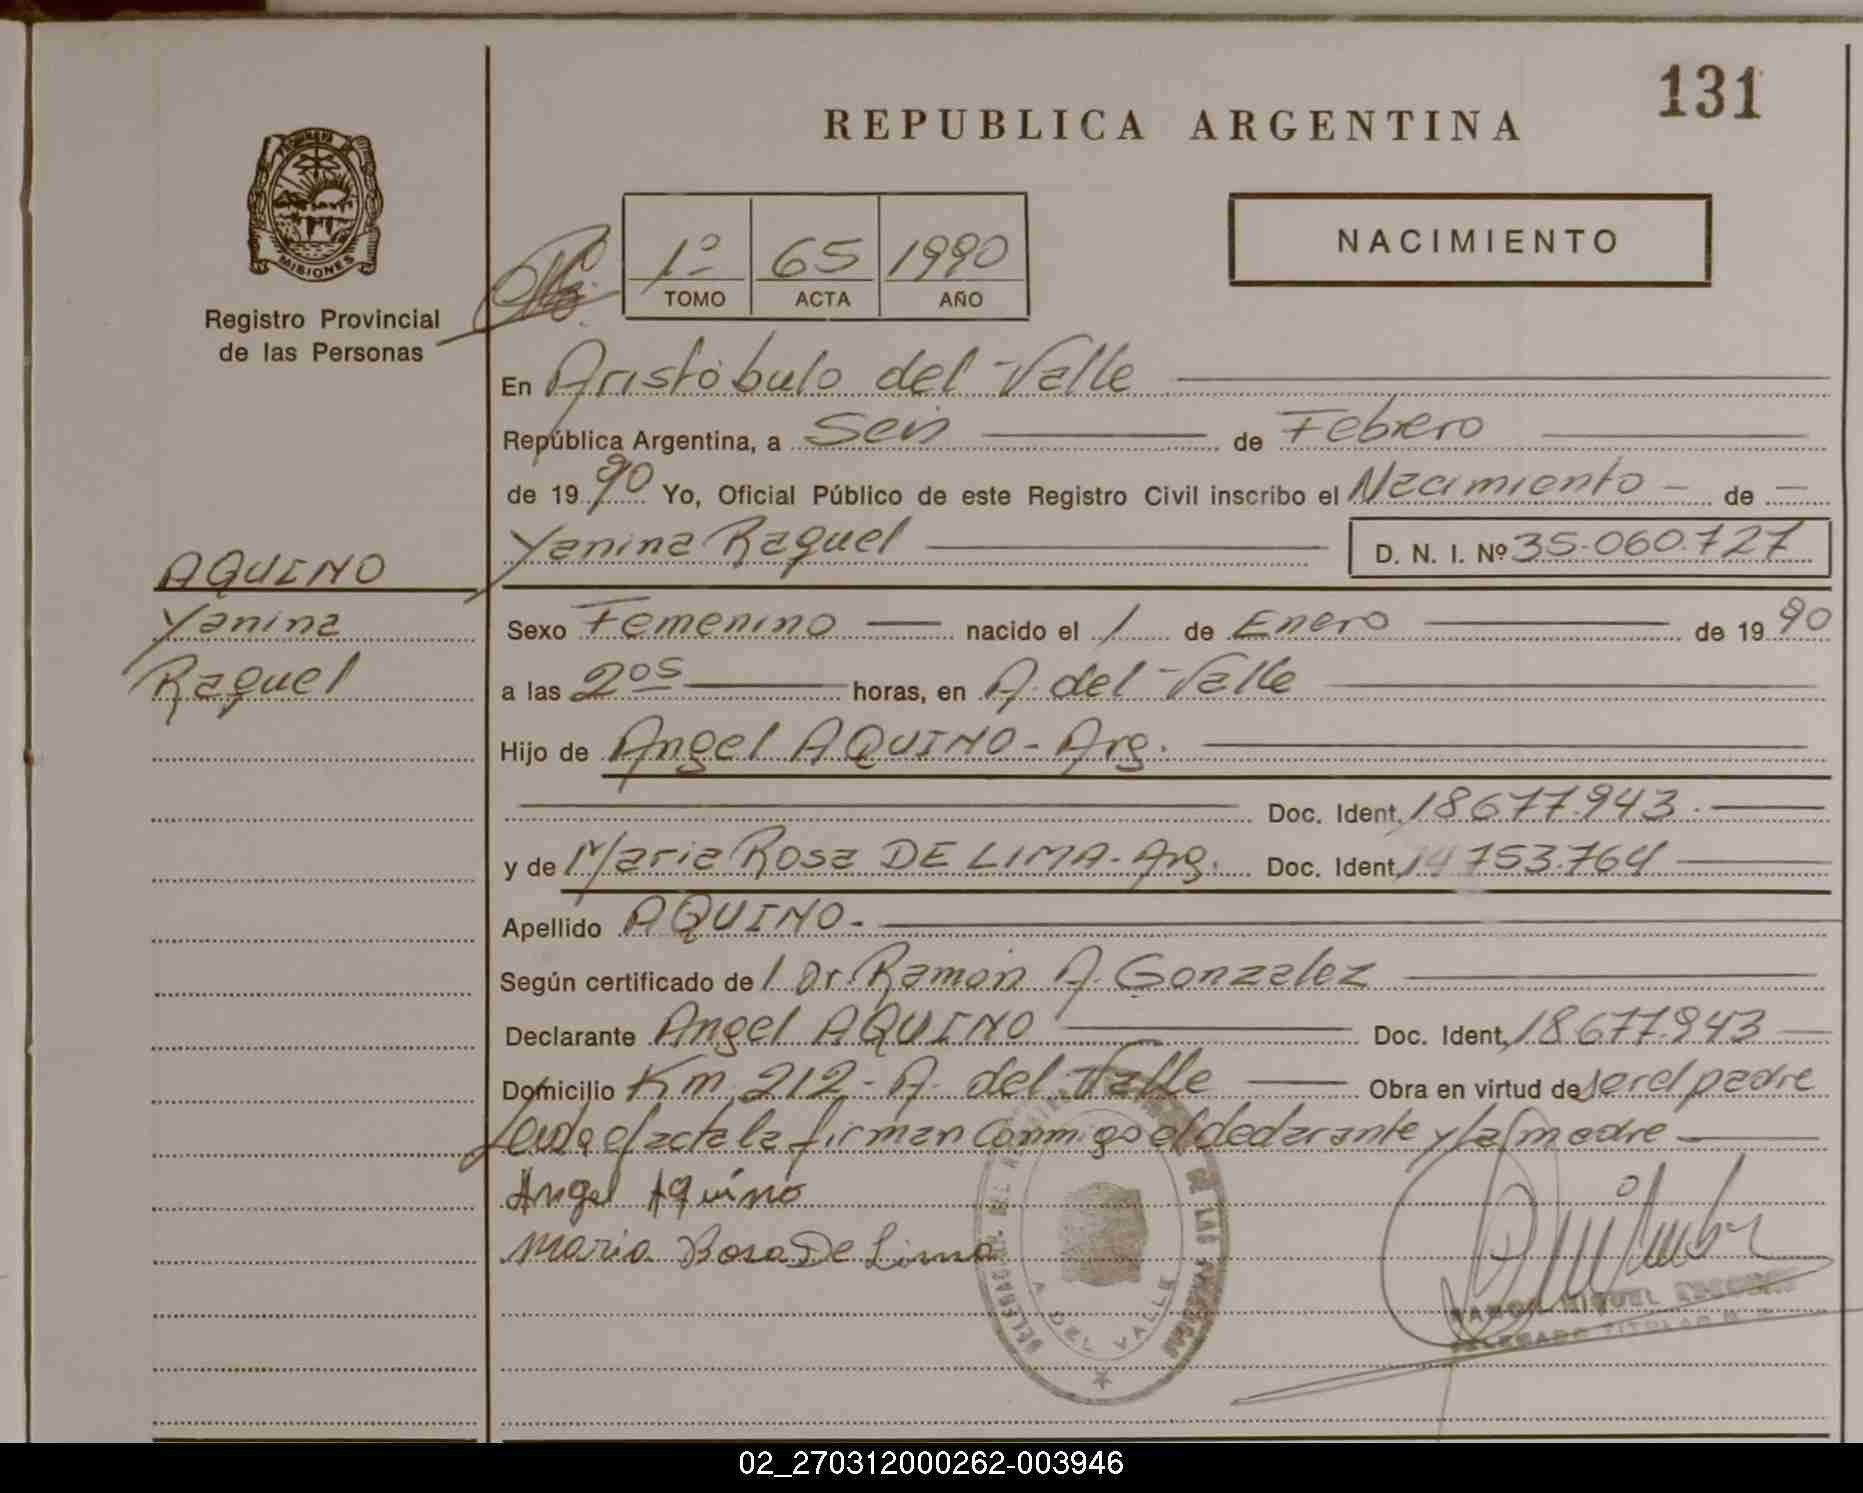 131
REPUBLICA ARGENTINA
MISIONES
Registro Provincial
de las Personas
1º 65 1990
TOMO ACTA AÑO
NACIMIENTO
En Aristóbulo del Valle
República Argentina, a Seis de Febrero
de 1990 Yo, Oficial Público de este Registro Civil inscribo el Nacimiento - de -
Yanina Raquel D. N. I. Nº 35.060.727
AQUINO
Yanina
Raquel
Sexo Femenino nacido el 1 de Enero de 1990
a las 2 05 horas, en A. del Valle
Hijo de Angel AQUINO - Arg.
Doc. Ident. 18677.943.
y de Maria Rosa DE LIMA - Arg. Doc. Ident. 14753.764
Apellido AQUINO.
Según certificado de l Dr. Ramón A. Gonzalez
Declarante Angel AQUINO Doc. Ident. 18.677.943
Domicilio Km. 212 - A. del Valle Obra en virtud de ser el padre
Leida el acta la firman conmigo el declarante y la madre
Angel Aquino
Maria Rosa De Lima
A. DEL VALLE
RAMON MIGUEL
DELEGADO TITULAR
02_270312000262-003946